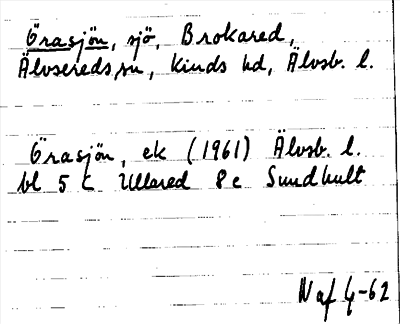 Örasjön, sjö, Brokared,
Älvsereds sn, Kinds hd, Älvsb. l.
Örasjön, ek (1961) Älvsb. l.
bl 5 C Ullared 8 e Sundhult
N af G-62